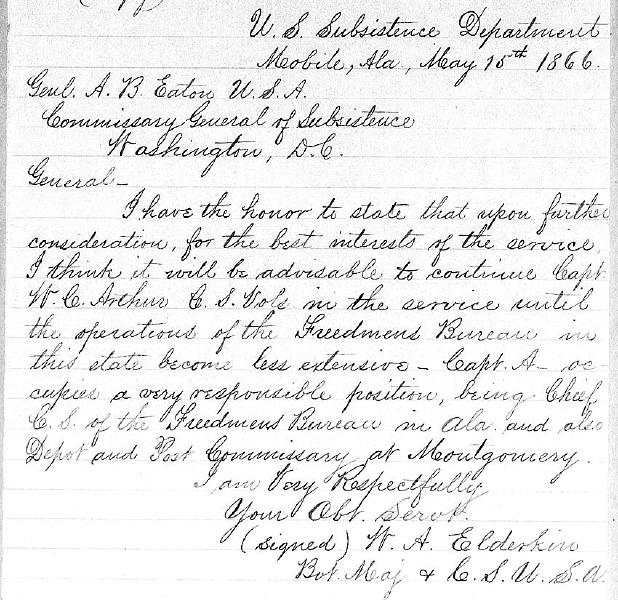 (Copy)
U. S. Subsistence Department
Mobile, Ala., May 15th 1866.
Genl. A. B. Eaton U. S. A.
Commissary General of Subsistence
Washington, D.C.
General–
I have the honor to state that upon further
consideration, for the best interests of the service,
I think it will be advisable to continue Capt.
W. C. Arthur C. S. Vols in the service until
the operations of the Freedmens Bureau in
this state become less extensive – Capt. A– oc-
cupies a very responsible position, being Chief
C. S. of the Freedmens Bureau in Ala. and also
Depot and Post Commissary at Montgomery.
I am Very Respectfully
Your Obt. Servt.
(signed) W. A. Elderkin
Bvt. Maj & C. S. U. S. A.